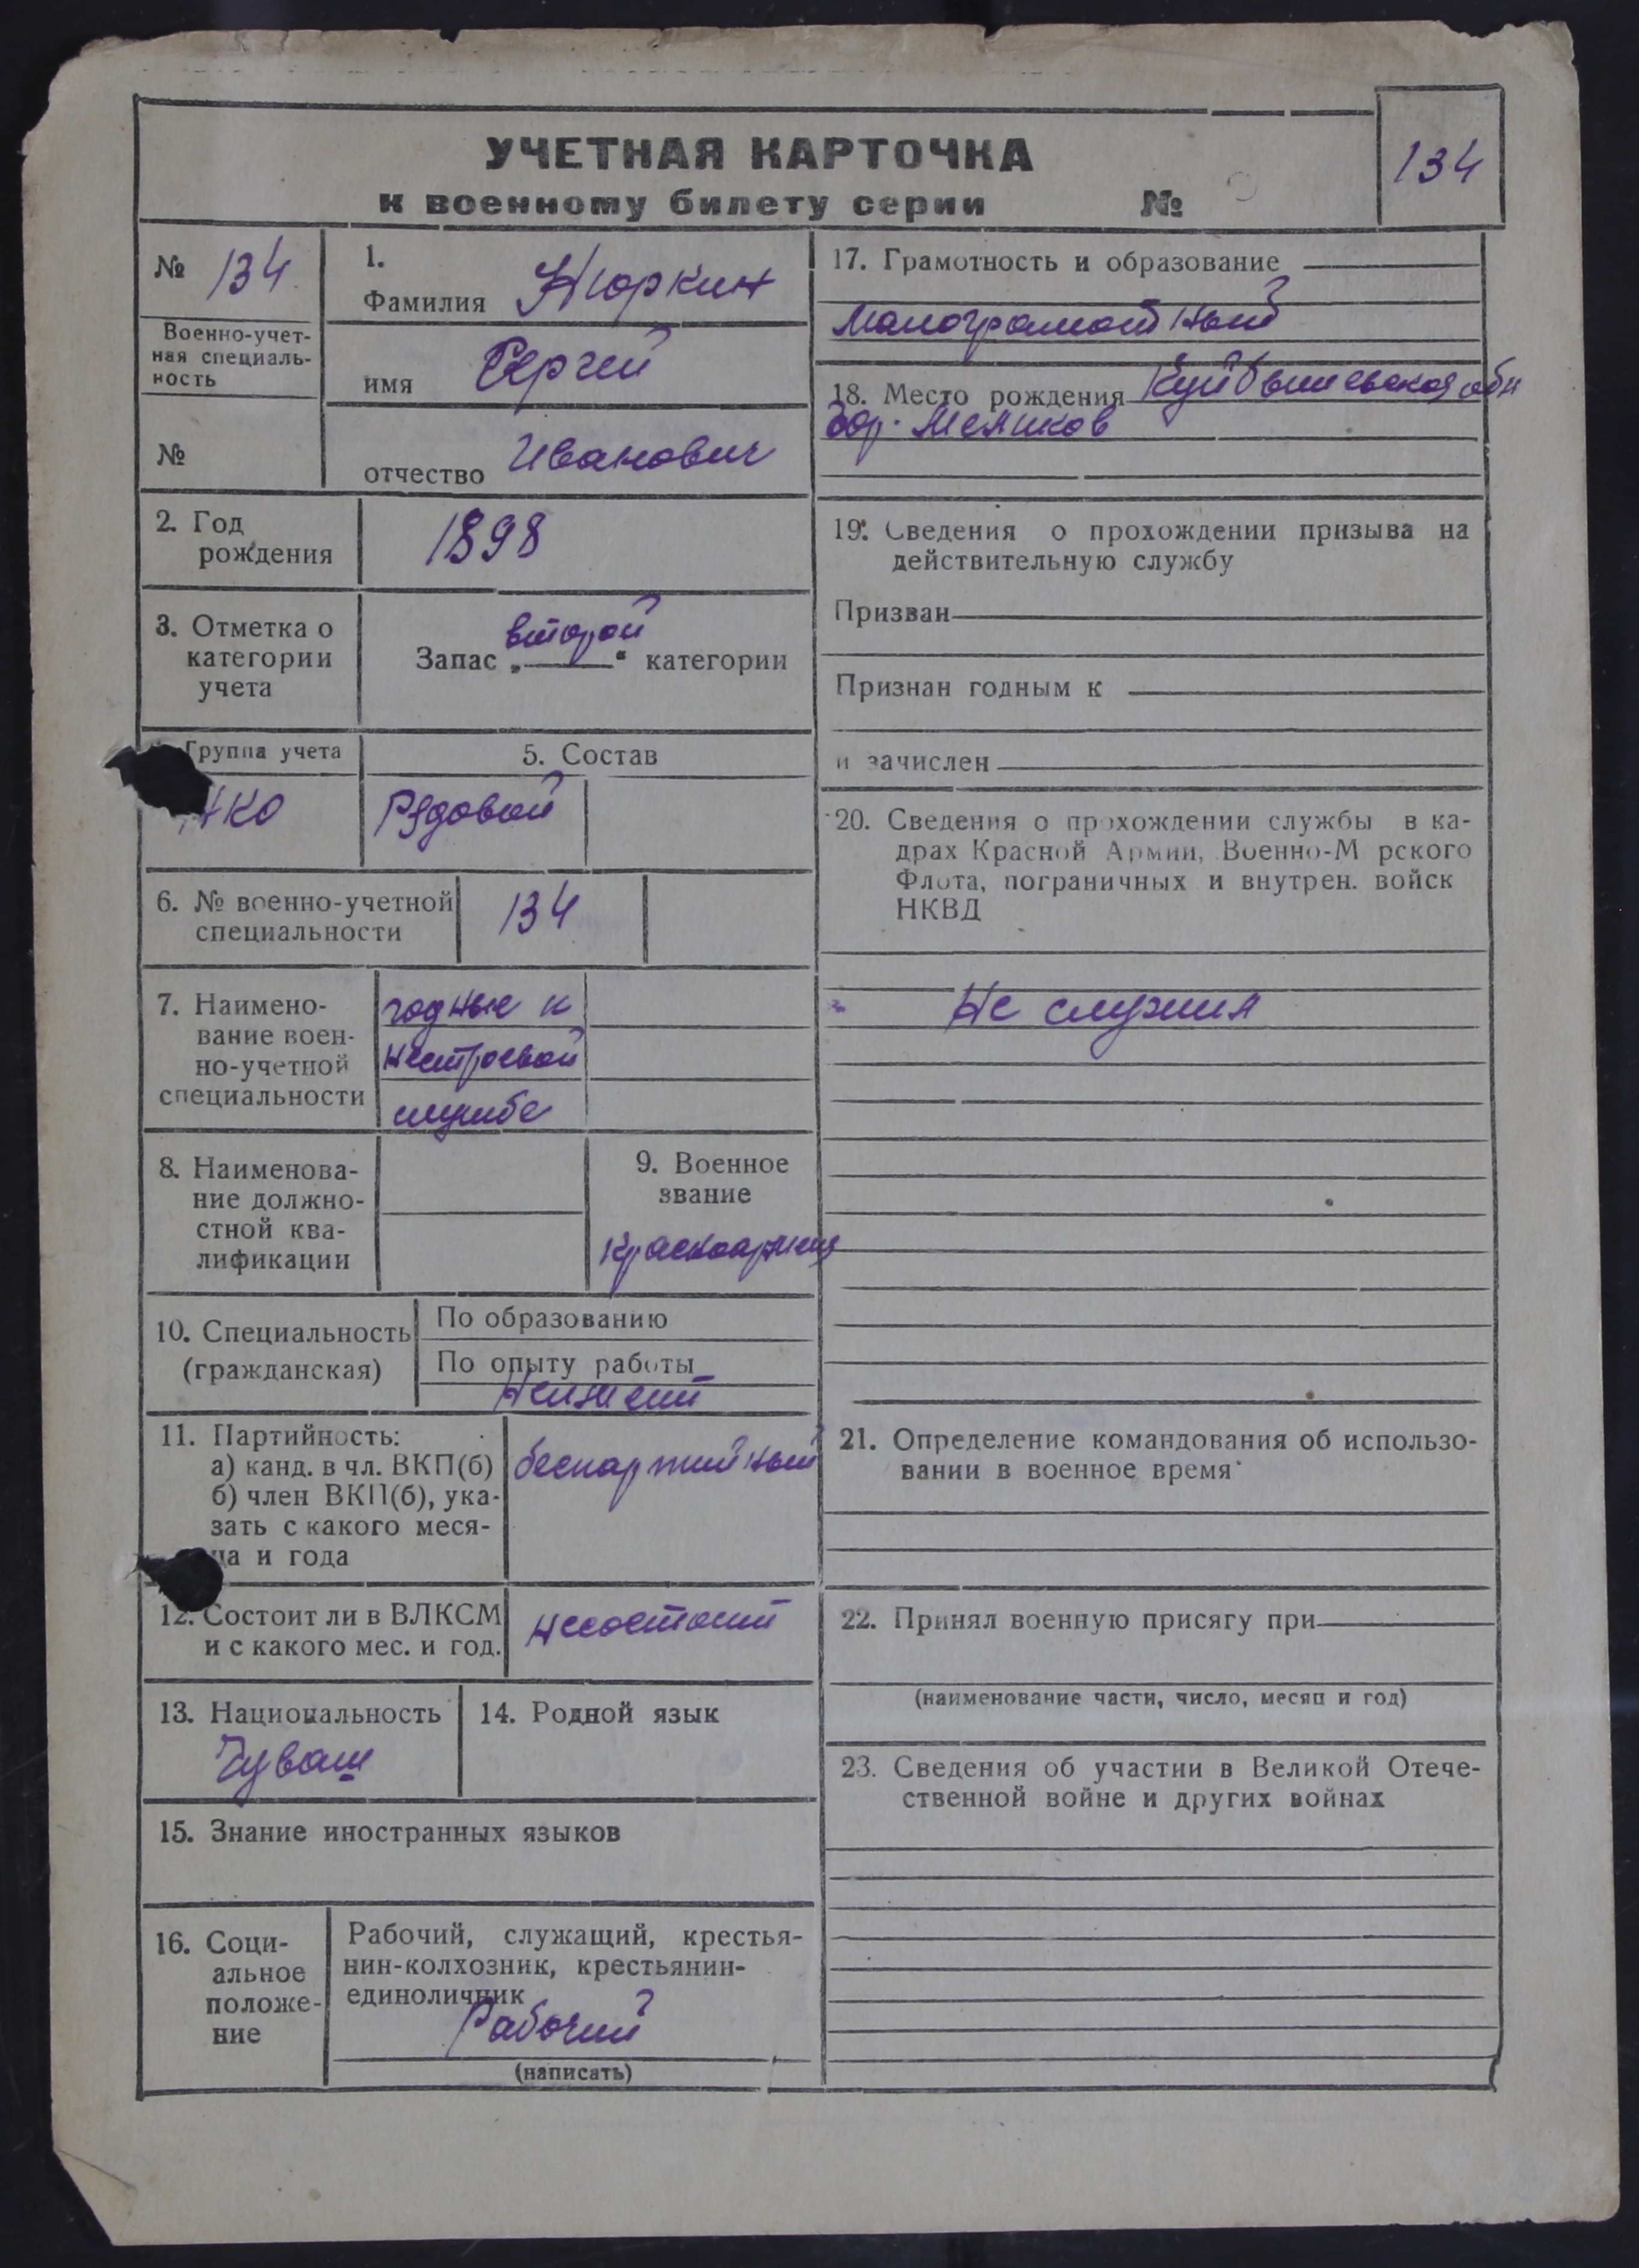 УЧЕТНАЯ КАРТОЧКА
к военному билету серии №
134
№ 134
Военно-учет-
ная специаль-
ность
№
1.
Фамилия Нюркин
имя Сергей
отчество Иванович
2. Год
рождения
1898
3. Отметка о
категории
учета
второй
Запас „ “ категории
Группа учета
НКО
5. Состав
Рядовой
6. № военно-учетной
специальности
134
7. Наимено-
вание воен-
но-учетной
специальности
годные к
нестроевой
службе
8. Наименова-
ние должно-
стной ква-
лификации
9. Военное
звание
Красноармец
10. Специальность
(гражданская)
По образованию
По опыту работы
11. Партийность:
а) канд. в чл. ВКП(б)
б) член ВКП(б), ука-
зать с какого меся-
ца и года
беспартийный
12. Состоит ли в ВЛКСМ
и с какого мес. и год.
несостоит
13. Национальность
Чуваш
14. Родной язык
15. Знание иностранных языков
16. Соци-
альное
положе-
ние
Рабочий, служащий, крестья-
нин-колхозник, крестьянин-
единоличник
Рабочий
(написать)
17. Грамотность и образование
Малограмотный
18. Место рождения Куйбышевская обл
гор. Мелеков
19. Сведения о прохождении призыва на
действительную службу
Призван
Признан годным к
и зачислен
20. Сведения о прохождении службы в ка-
драх Красной Армии, Военно-М рского
Флота, пограничных и внутрен. войск
НКВД
Не служил
21. Определение командования об использо-
вании в военное время
22. Принял военную присягу при
(наименование части, число, месяц и год)
23. Сведения об участии в Великой Отече-
ственной войне и других войнах